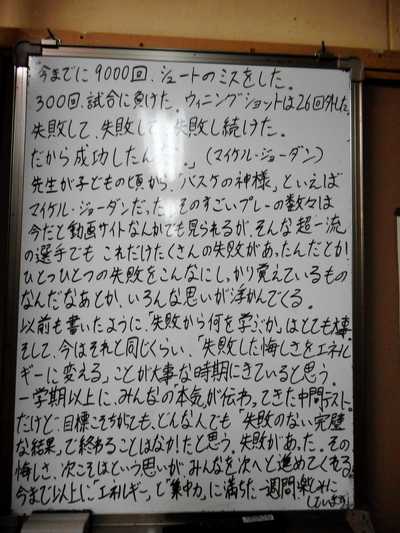 今までに9000回、シュートのミスをした。
300回、試合に負けた。ウィニングショットは26回外した。
失敗して、失敗して、失敗し続けた。
だから成功したん 。」(マイケル・ジョーダン)
先生が子どもの頃から、「バスケの神様」といえば
マイケル・ジョーダンだった。そのすごいプレーの数々は
今だと動画サイトなんかでも見られるが、そんな超一流
の選手でも これだけたくさんの失敗があったんだとか!
ひとつひとつの失敗をこんなにしっかり覚えているもの
なんだなあとか、いろんな思いが浮かんでくる。
以前も書いたように、「失敗から何を学ぶか」はとても大事。
そして、今はそれと同じくらい、「失敗した悔しさをエネル
ギーに変える」ことが大事な時期にきていると思う。
一学期以上に、みんなの「本気」が伝わってきた中間テスト。
だけど、目標こそちがても、どんな人でも「失敗のない完璧
な結果」で終わることはなかったと思う。失敗があった。その
悔しさ、次こそはという思いが、みんなを次へと進めてくれる。
今まで以上に「エネルギー」と「集中力」に満ちた一週間、楽しみに
しています。